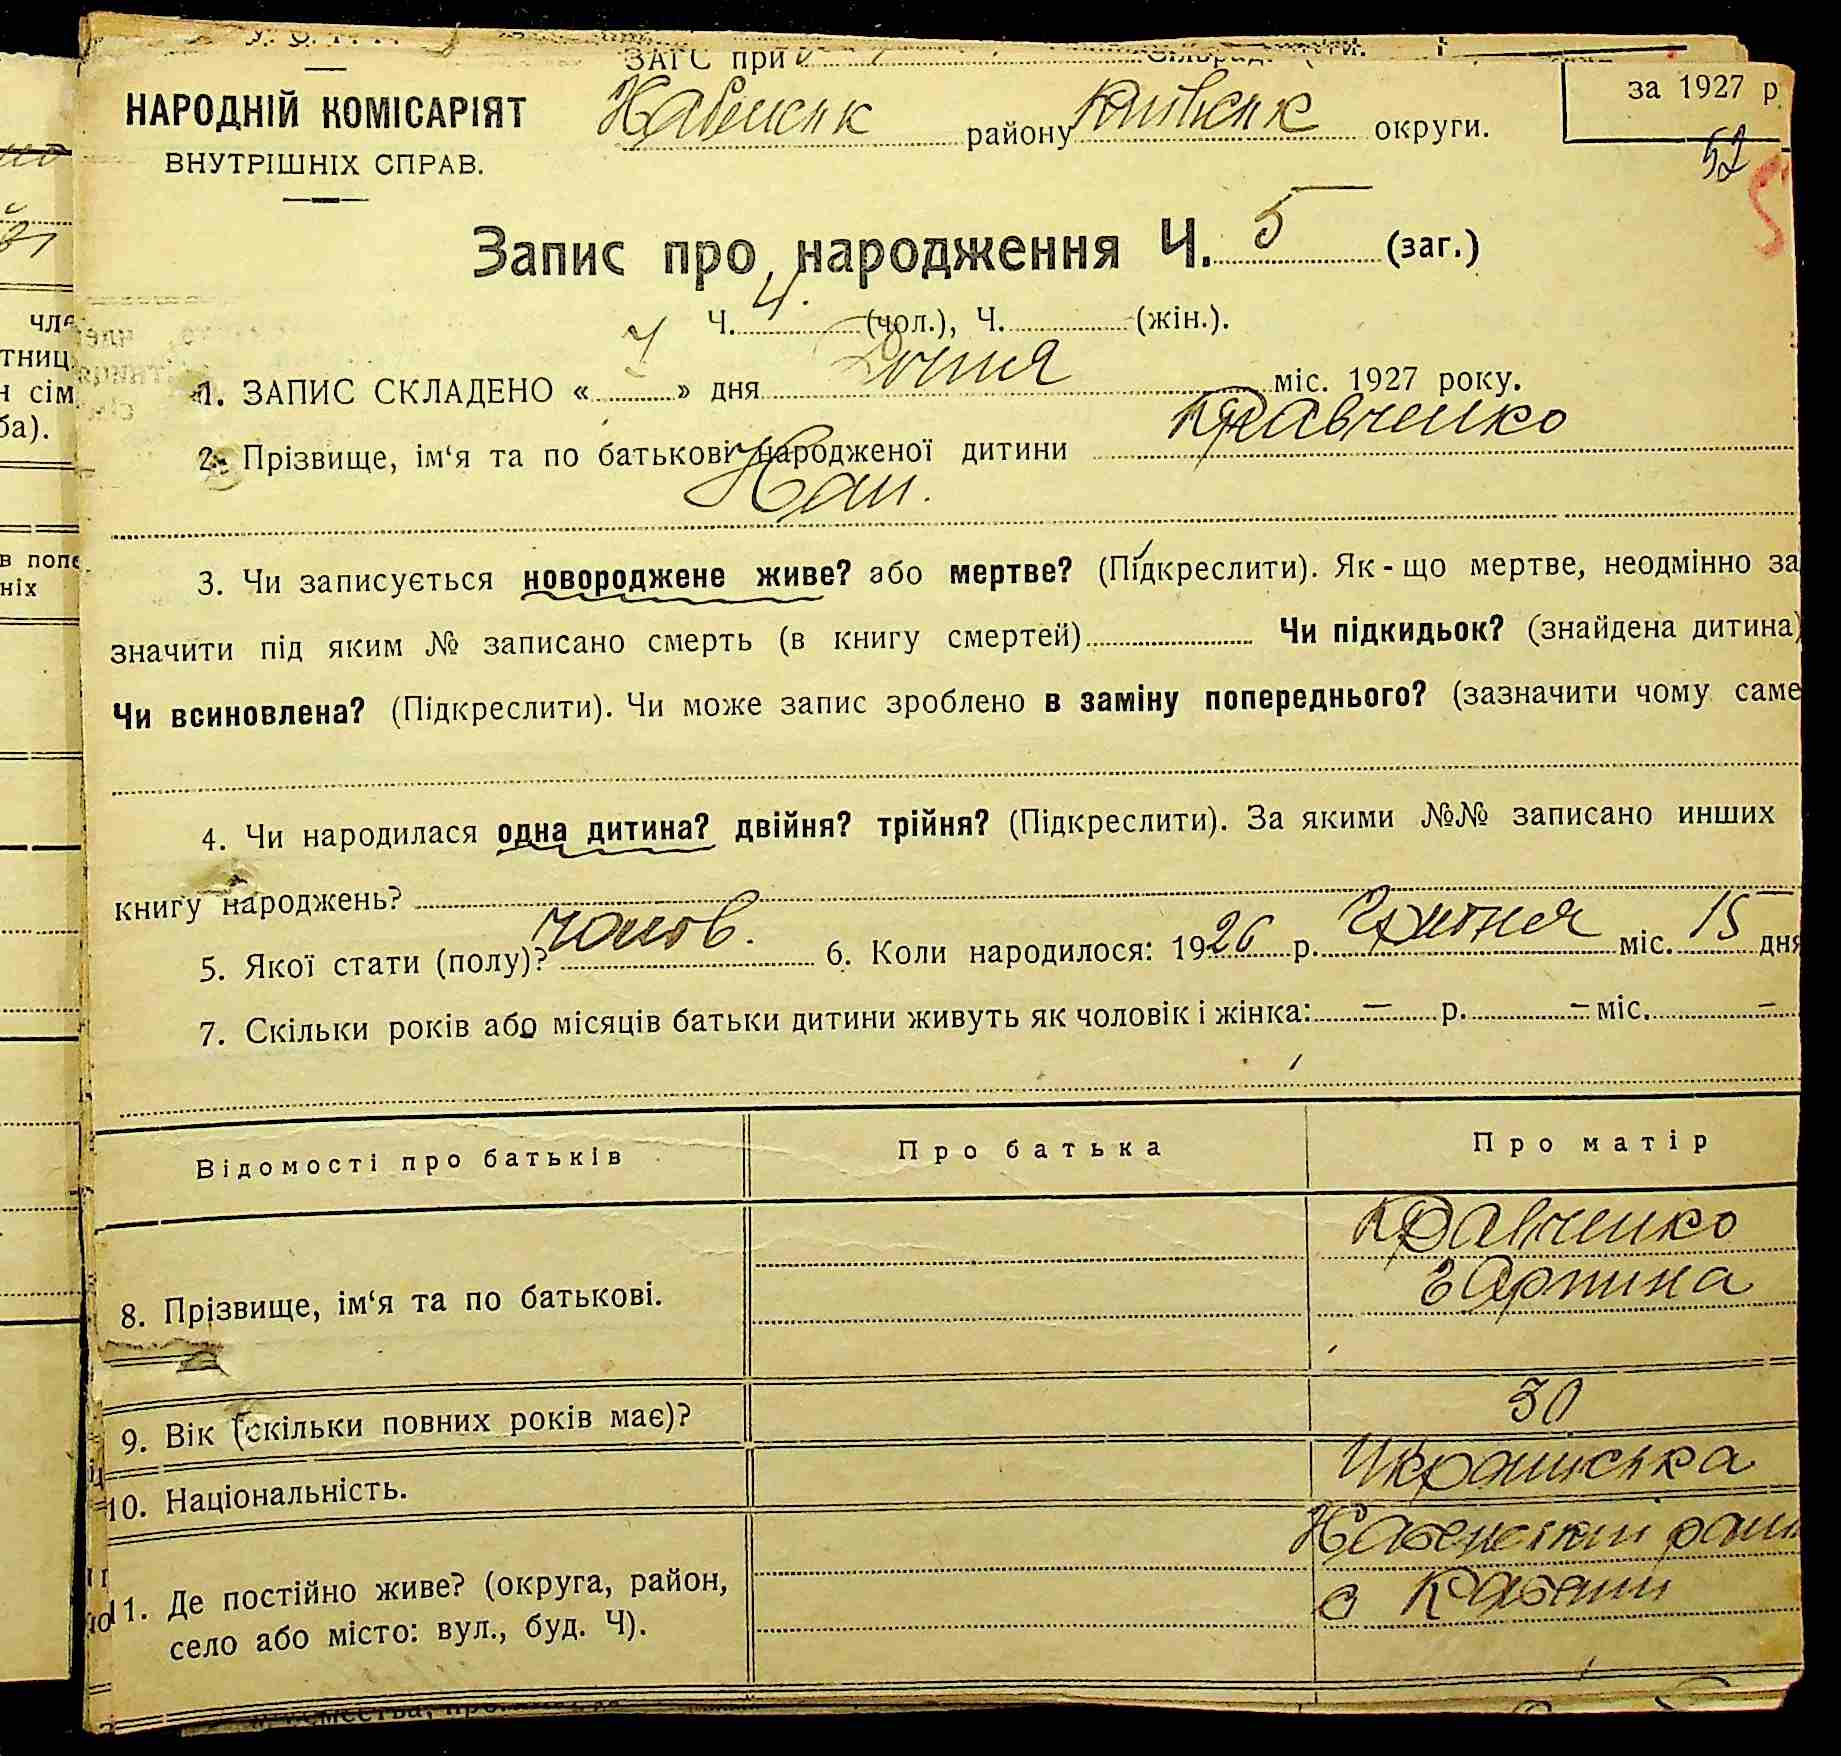 ЗАГС при Сільрад.
НАРОДНІЙ КОМІСАРІЯТ
ВНУТРІШНІХ СПРАВ.
району округи.
за 1927 р
52
5
Запис про народження Ч. 5 (заг.)
Ч. 4. (чол.), Ч. (жін.).
1. ЗАПИС СКЛАДЕНО « » дня міс. 1927 року.
2. Прізвище, ім'я та по батькові народженої дитини Кравченко
3. Чи записується новороджене живе? або мертве? (Підкреслити). Як-що мертве, неодмінно за
значити під яким № записано смерть (в книгу смертей) Чи підкидьок? (знайдена дитина)
Чи всиновлена? (Підкреслити). Чи може запис зроблено в заміну попереднього? (зазначити чому саме
4. Чи народилася одна дитина? двійня? трійня? (Підкреслити). За якими №№ записано инших
книгу народжень?
5. Якої стати (полу)? чолов. 6. Коли народилося: 1926 р. Грудня міс. 15 дня
7. Скільки років або місяців батьки дитини живуть як чоловік і жінка: – р. – міс. –
Відомості про батьків Про батька Про матір
8. Прізвище, ім'я та по батькові. Кравченко
9. Вік (скільки повних років має)? 30
10. Національність. Украинська
11. Де постійно живе? (округа, район,
село або місто: вул., буд. Ч).
с Кабани